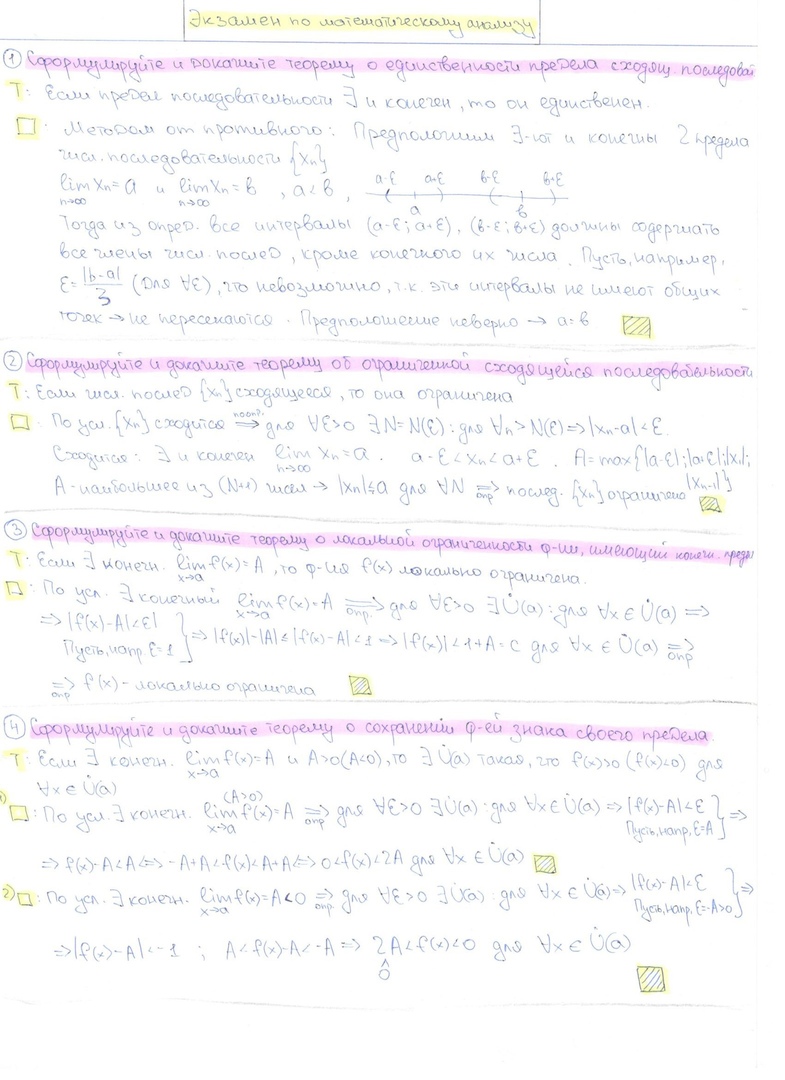 Экзамен по математическому анализу
① Сформулируйте и докажите теорему о единственности предела сходящ. последоват
Т: Если предел последовательности ∃ и конечен, то он единственен.
□: Методом от противного: Предположим ∃-ют и конечны 2 предела
числ. последовательности {xn}
lim xn = a и lim xn = в , a < в , a-ε a+ε в-ε в+ε
n→∞ n→∞ a в
Тогда из опред. все интервалы (a-ε; a+ε), (в-ε; в+ε) должны содержать
все члены числ. послед, кроме конечного их числа. Пусть, например,
ε = |b-a|/3 (для ∀ε), что невозможно, т.к. эти интервалы не имеют общих
точек → не пересекаются. Предположение неверно → a = в
② Сформулируйте и докажите теорему об ограниченной сходящейся последовательности
Т: Если числ. послед {xn} сходящееся, то она ограничена
□: По усл. {xn} сходится ⟹ по опр. для ∀ε>0 ∃N=N(ε): для ∀n>N(ε) ⟹ |xn-a|<ε.
Сходится: ∃ и конечен lim xn = a. a-ε < xn < a+ε. A = max{|a-ε|; |a+ε|; |x1|;
n→∞ |xn-1|}
A - наибольшее из (N+1) чисел → |xn| ≤ a для ∀N ⟹ опр послед. {xn} ограничена
③ Сформулируйте и докажите теорему о локальной ограниченности ф-ии, имеющий конечн. пред
Т: Если ∃ конечн. lim f(x) = A, то ф-ия f(x) локально ограничена.
x→a
□: По усл. ∃ конечный lim f(x) = A ⟹ опр. для ∀ε>0 ∃U̇(a): для ∀x ∈ U̇(a) ⟹
x→a
⟹ |f(x)-A|<ε| } ⟹ |f(x)|-|A| ≤ |f(x)-A| < 1 ⟹ |f(x)| < 1+A = c для ∀x ∈ U̇(a) ⟹ опр
Пусть, напр. ε=1
⟹ опр f(x) - локально ограничена
④ Сформулируйте и докажите теорему о сохранении ф-ей знака своего предела.
Т: Если ∃ конечн. lim f(x) = A и A>0 (A<0), то ∃ U̇(a) такая, что f(x)>0 (f(x)<0) для
x→a
∀x ∈ U̇(a)
1) □: По усл. ∃ конечн. lim f(x) = A (A>0) ⟹ опр для ∀ε>0 ∃U̇(a): для ∀x ∈ U̇(a) ⟹ |f(x)-A|<ε } ⟹
x→a Пусть, напр. ε=A
⟹ f(x)-A<A ⟺ -A+A<f(x)<A+A ⟺ 0<f(x)<2A для ∀x ∈ U̇(a)
2) □: По усл. ∃ конечн. lim f(x) = A<0 ⟹ опр для ∀ε>0 ∃U̇(a): для ∀x ∈ U̇(a) ⟹ |f(x)-A|<ε } ⟹
x→a Пусть, напр. ε=-A>0
⟹ |f(x)-A|<-1 ; A<f(x)-A<-A ⟹ 2A<f(x)<0 для ∀x ∈ U̇(a)
^
0